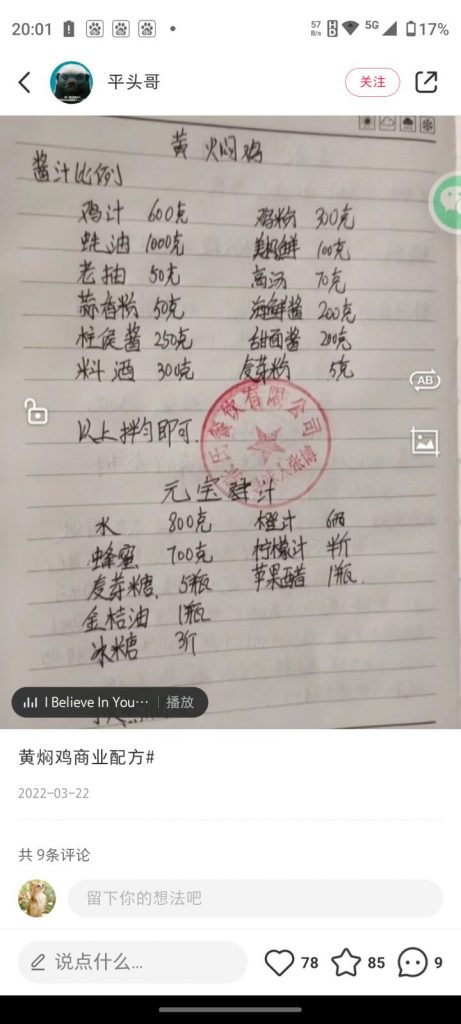 20:01
57 B/s 5G 17%
平头哥
关注
黄焖鸡
酱汁比例
鸡汁 600克 鸡粉 300克
蚝油 1000克 美极鲜 100克
老抽 50克 高汤 70克
蒜香粉 50克 海鲜酱 200克
柱侯酱 250克 甜面酱 200克
料酒 300克 麦芽粉 5克
以上拌匀即可.
餐饮有限公司
元宝肆汁
水 800克 橙汁 6两
蜂蜜 700克 柠檬汁 半斤
麦芽糖. 5瓶 苹果醋 1瓶.
金桔油 1瓶
冰糖 3斤
AB
I Believe In You… 播放
黄焖鸡商业配方#
2022-03-22
共 9条评论
留下你的想法吧
说点什么... 78 85 9